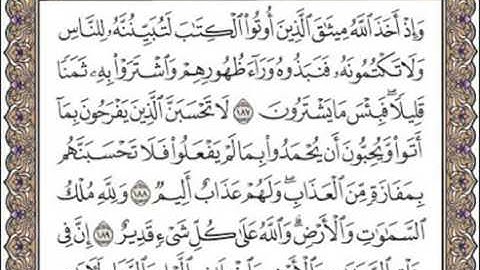 وَإِذْ أَخَذَ ٱللَّهُ مِيثَٰقَ ٱلَّذِينَ أُوتُوا۟ ٱلْكِتَٰبَ لَتُبَيِّنُنَّهُۥ لِلنَّاسِ
وَلَا تَكْتُمُونَهُۥ فَنَبَذُوهُ وَرَآءَ ظُهُورِهِمْ وَٱشْتَرَوْا۟ بِهِۦ ثَمَنًا
قَلِيلًا ۖ فَبِئْسَ مَا يَشْتَرُونَ ١٨٧ لَا تَحْسَبَنَّ ٱلَّذِينَ يَفْرَحُونَ بِمَآ
أَتَوا۟ وَّيُحِبُّونَ أَن يُحْمَدُوا۟ بِمَا لَمْ يَفْعَلُوا۟ فَلَا تَحْسَبَنَّهُم
بِمَفَازَةٍ مِّنَ ٱلْعَذَابِ ۖ وَلَهُمْ عَذَابٌ أَلِيمٌ ١٨٨ وَلِلَّهِ مُلْكُ
ٱلسَّمَٰوَٰتِ وَٱلْأَرْضِ ۗ وَٱللَّهُ عَلَىٰ كُلِّ شَىْءٍ قَدِيرٌ ١٨٩ إِنَّ فِى